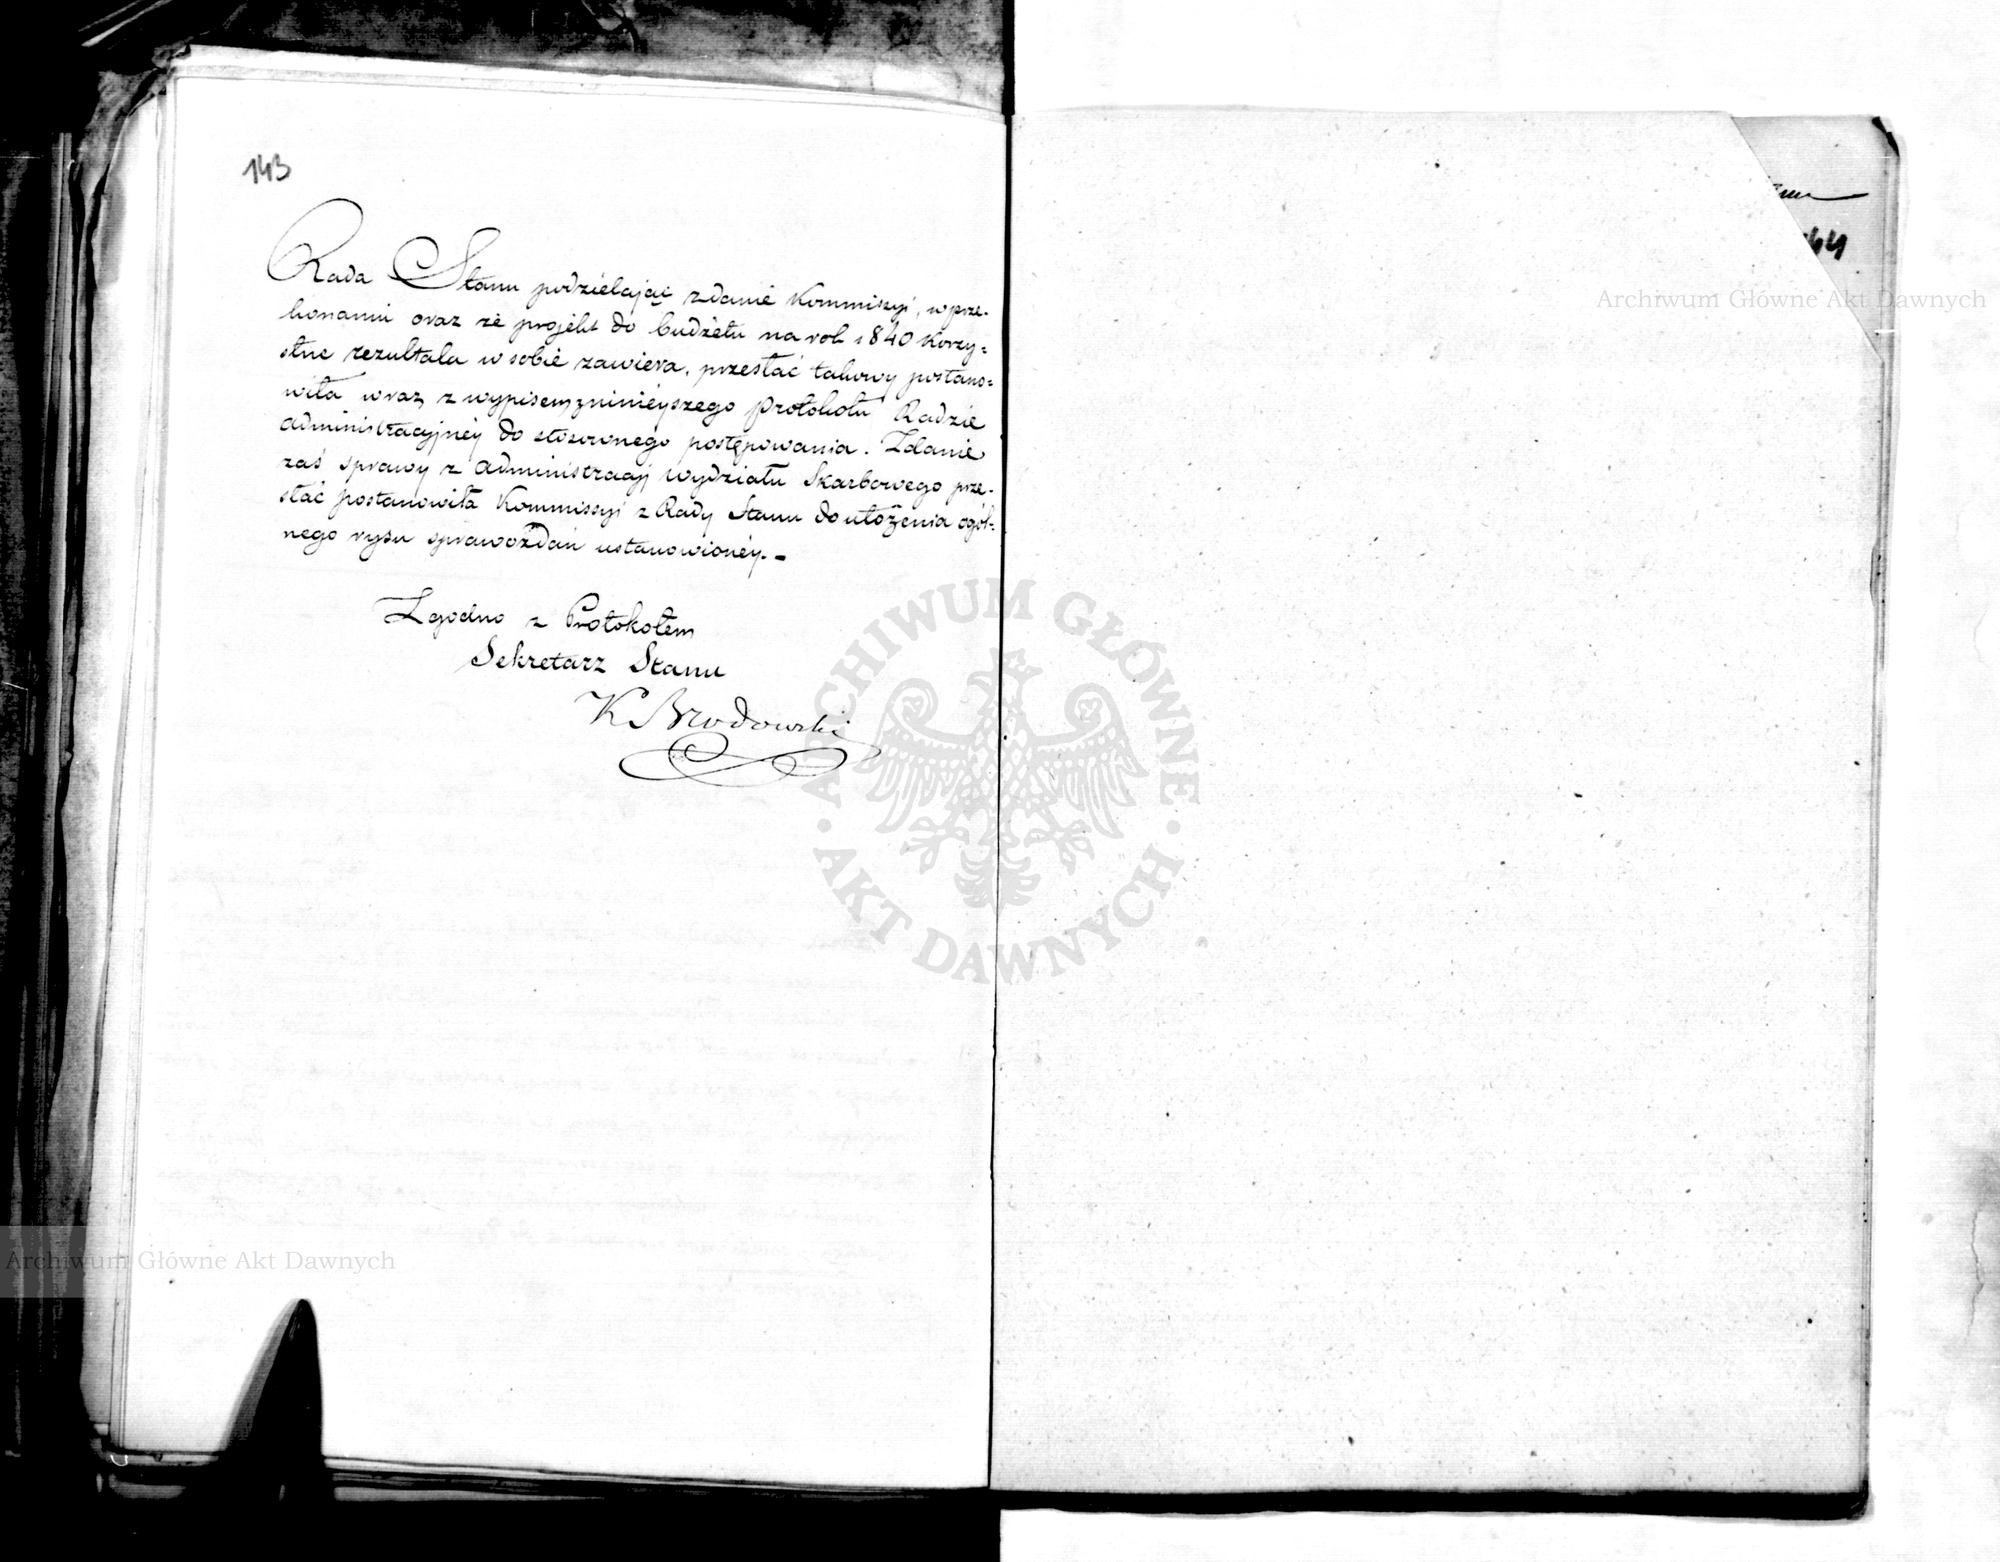 143
Rada Stanu podzielaiąc zdanie Kommiszyi, w prze-
konaniu oraz że projekt do budżetu na rok 1840 korzy=
stne rezultata w sobie zawiera, przesłać takowy postano=
wiła wraz z wypisem z ninieyszego Protokołu Radzie
Administracyjney do stosownego postępowania. Zdanie
zaś sprawy z Administracyj Wydziału Skarbowego prze-
słać postanowiła Kommissyi z Rady Stanu do ułożenia ogól=
nego rysu sprawozdań ustanowioney.-
Zgodno z Protokołem
Sekretarz Stanu
K Brodowski
Archiwum Główne Akt Dawnych
ARCHIWUM GŁÓWNE
AKT DAWNYCH
Archiwum Główne Akt Dawnych